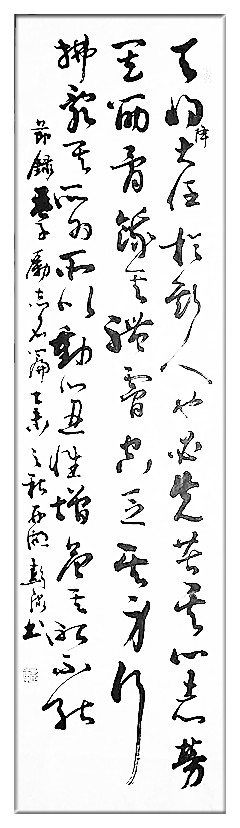 天将降大任於斯人也必先苦其心志勞
其筋骨餓其體膚空乏其身行
拂亂其所為所以動心忍性增益其所不能
節錄孟子勵志名篇未之秋書